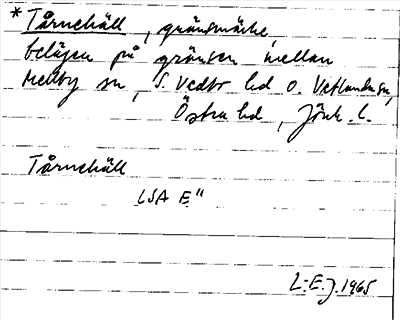 * Tårnehäll, gränsmärke
beläget på gränsen mellan
Mellby sn, S. Vedbo hd o. Vetlanda sn,
Östra hd, Jönk. l.
Tårnehäll
LSA E"
L.E.J. 1965